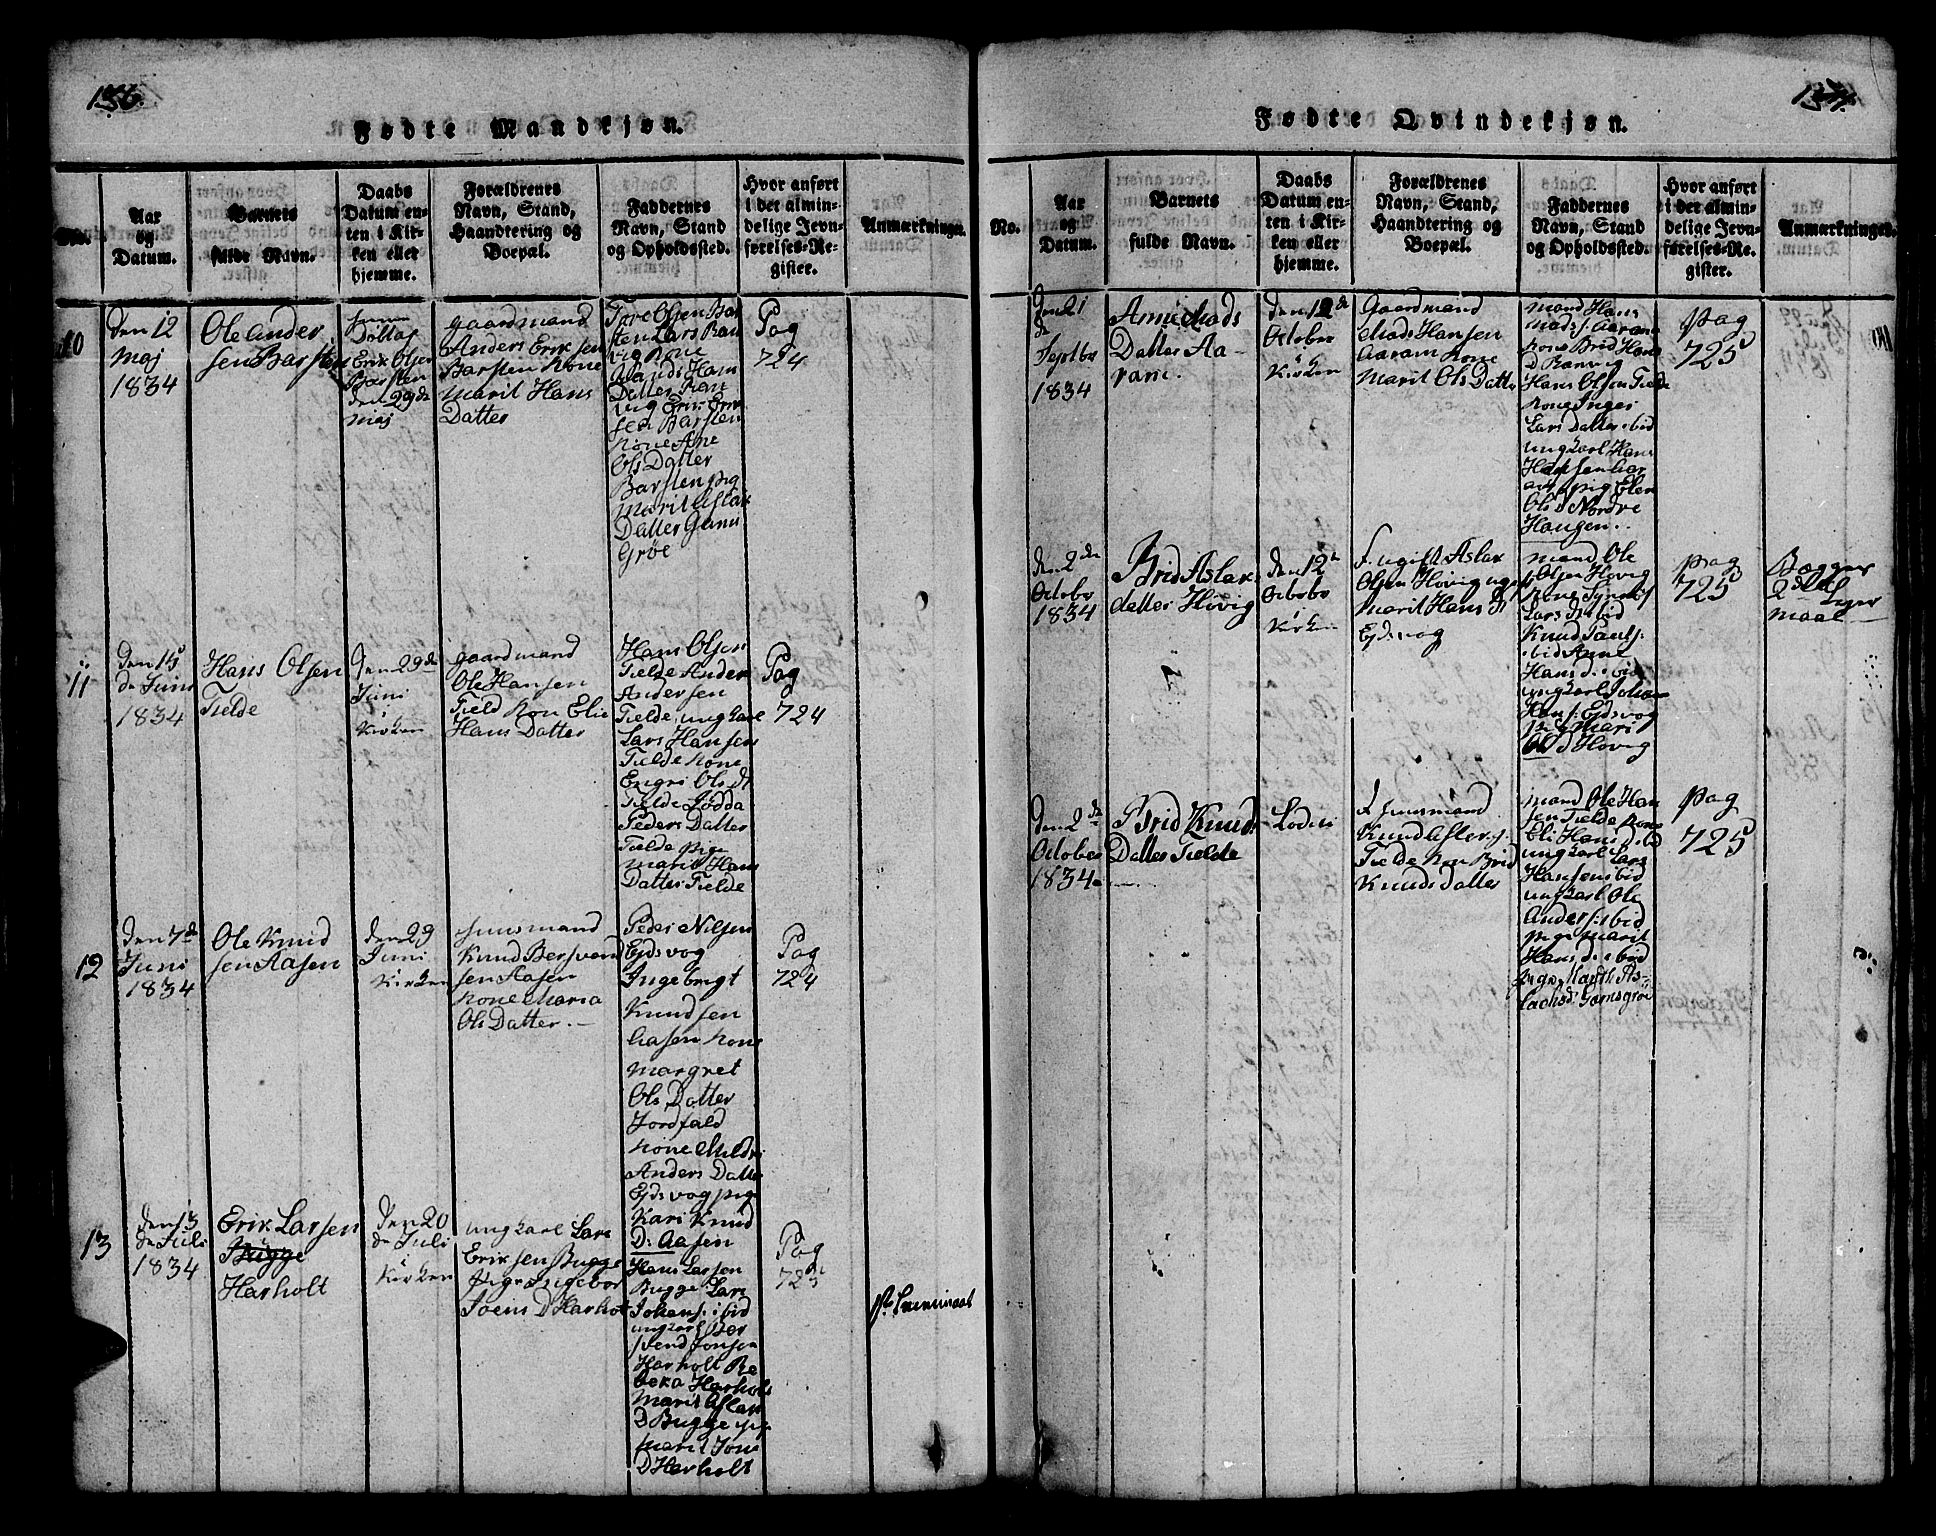 136.
Fødte Mandkjøn.
No.
Aar
og
Datum.
Barnets
fulde Navn.
Daabs
Datum en-
ten i Kir-
ken eller
hjemme.
Forældrenes
Navn, Stand,
Haandtering og
Boepæl.
Faddernes
Navn, Stand
og Opholdssted.
Hvor anført
i det almin-
delige Jevn-
førelses-Re-
gister.
Anmærkninger.
10
Den 12
Maj
1834
Ole Ander
sen Barsten
hjemme
Erik Olsen
Barsten
den 29de
Maj
Gaardmand
Anders Erik sen
Barsten Kone
Marit Hans
Datter
Tore Olsen Bar
sten Lars
Kone
Hans
Datter Ran
vig Erik Erik
sen Barsten
Kone Ane
Ols Datter
Barsten pig
Marit Aslak
Datter
Grøe
Pag
724
11
Den 15
de Juni
1834
Hans Olsen
Tielde
Den 29de
Juni
Kirken
Gaardmand
Ole Hansen
Tield Kon Elie
Hans Datter
Hans Olsen
Tielde Ander
Andersen
Tielde, ungkarl
Lars Hansen
Tielde Kone
Engri Ols dt
Tielde Lødda
Peders Datter
Tielde pige
Marit Hans
Datter Tielde
Pag
724
12
Den 7de
Juni
1834
Ole Knud
sen Aasen
Den 29
Juni
Kirken
Huusmand
Knud Bersvend
sen Aasen
Kone Maria
Ols Datter. —
Peder Nilsen
Ejdsvog
Ingebregt
Knudsen
Aasen Kone
Margret
Ols Datter
Jordfald
Kone Mildri
Anders Datter
Ejdsvog pige
Kari Knud
D: Aasen
Pag
724
13
Den 13
de Juli
1834
Erik Larsen
Bugge
Harholt
Den 20
de Juli
Kirken
ungkarl Lars
Eriksen Bugge
pige Ingebor
Joens D Harhol
Hans Larsen
Bugge Lars
Johans: ibid
ungkarl Ber
svend Jonsen
Harholt Re
beka Harholt
Marit Aslak
D Bugge pig
Marit Jons
D Harholt
Pag
725
137.
Fødte Qvindekjøn.
No.
Aar
og
Datum.
Barnets
fulde Navn.
Daabs
Datum en-
ten i Kir-
ken eller
hjemme.
Forældrenes
Navn, Stand,
Haandtering og
Boepæl.
Faddernes
Navn, Stand
og Opholdssted.
Hvor anført
i det almin-
delige Jevn-
førelses-Re-
gister.
Anmærkninger.
Den 21
de
Septbr
1834
Anne Mads
Datter Aa-
ram.
Den 12de
October
Kirken
Gaardmand
Mads Hansen
Aaram Kone
Marit Ols Datter
Mand Hans
Mads: Aaram
Kone Brid Hans
D Ranvig
Hans Olsen Tielde
Kone Inger
Lars Datter ibid
ungkarl Hans
Hansen
pig Elen
Ols D Nordre
Haugen..
Pag
725
Den 2de
Octobr
1834
Brid Aslak
datter Hovig
Den 12
Octobr
Kirken
Ugift Aslak
Olsen Hovig
Marit Hans D
Ejdsvog
Mand Ole
Olsen Hovig
Kone Synnøf
Lars D ibid
Knud Pauls:
ibid Anne
Hans d. ibid
ungkarl Johan
Hans: Ejdsvog
pig Mari
Ols D Hovig
Pag
725
Begges
2det
Leger
maal —
Den 2de
October
1834
Brid Knuds
Datter Tielde
Huusmand
Knud
Tielde Kon Brid
Knuds Datter
Mand Ole Han
sen Tielde Kone
Eli Hans D. ibid
ungkarl Lars
Hansen ibid
ungkarl Ole
Anders: ibid
pige Marit
Hans D. ibid
pige Marth As-
lachsd: Gamsgroe
Pag
725